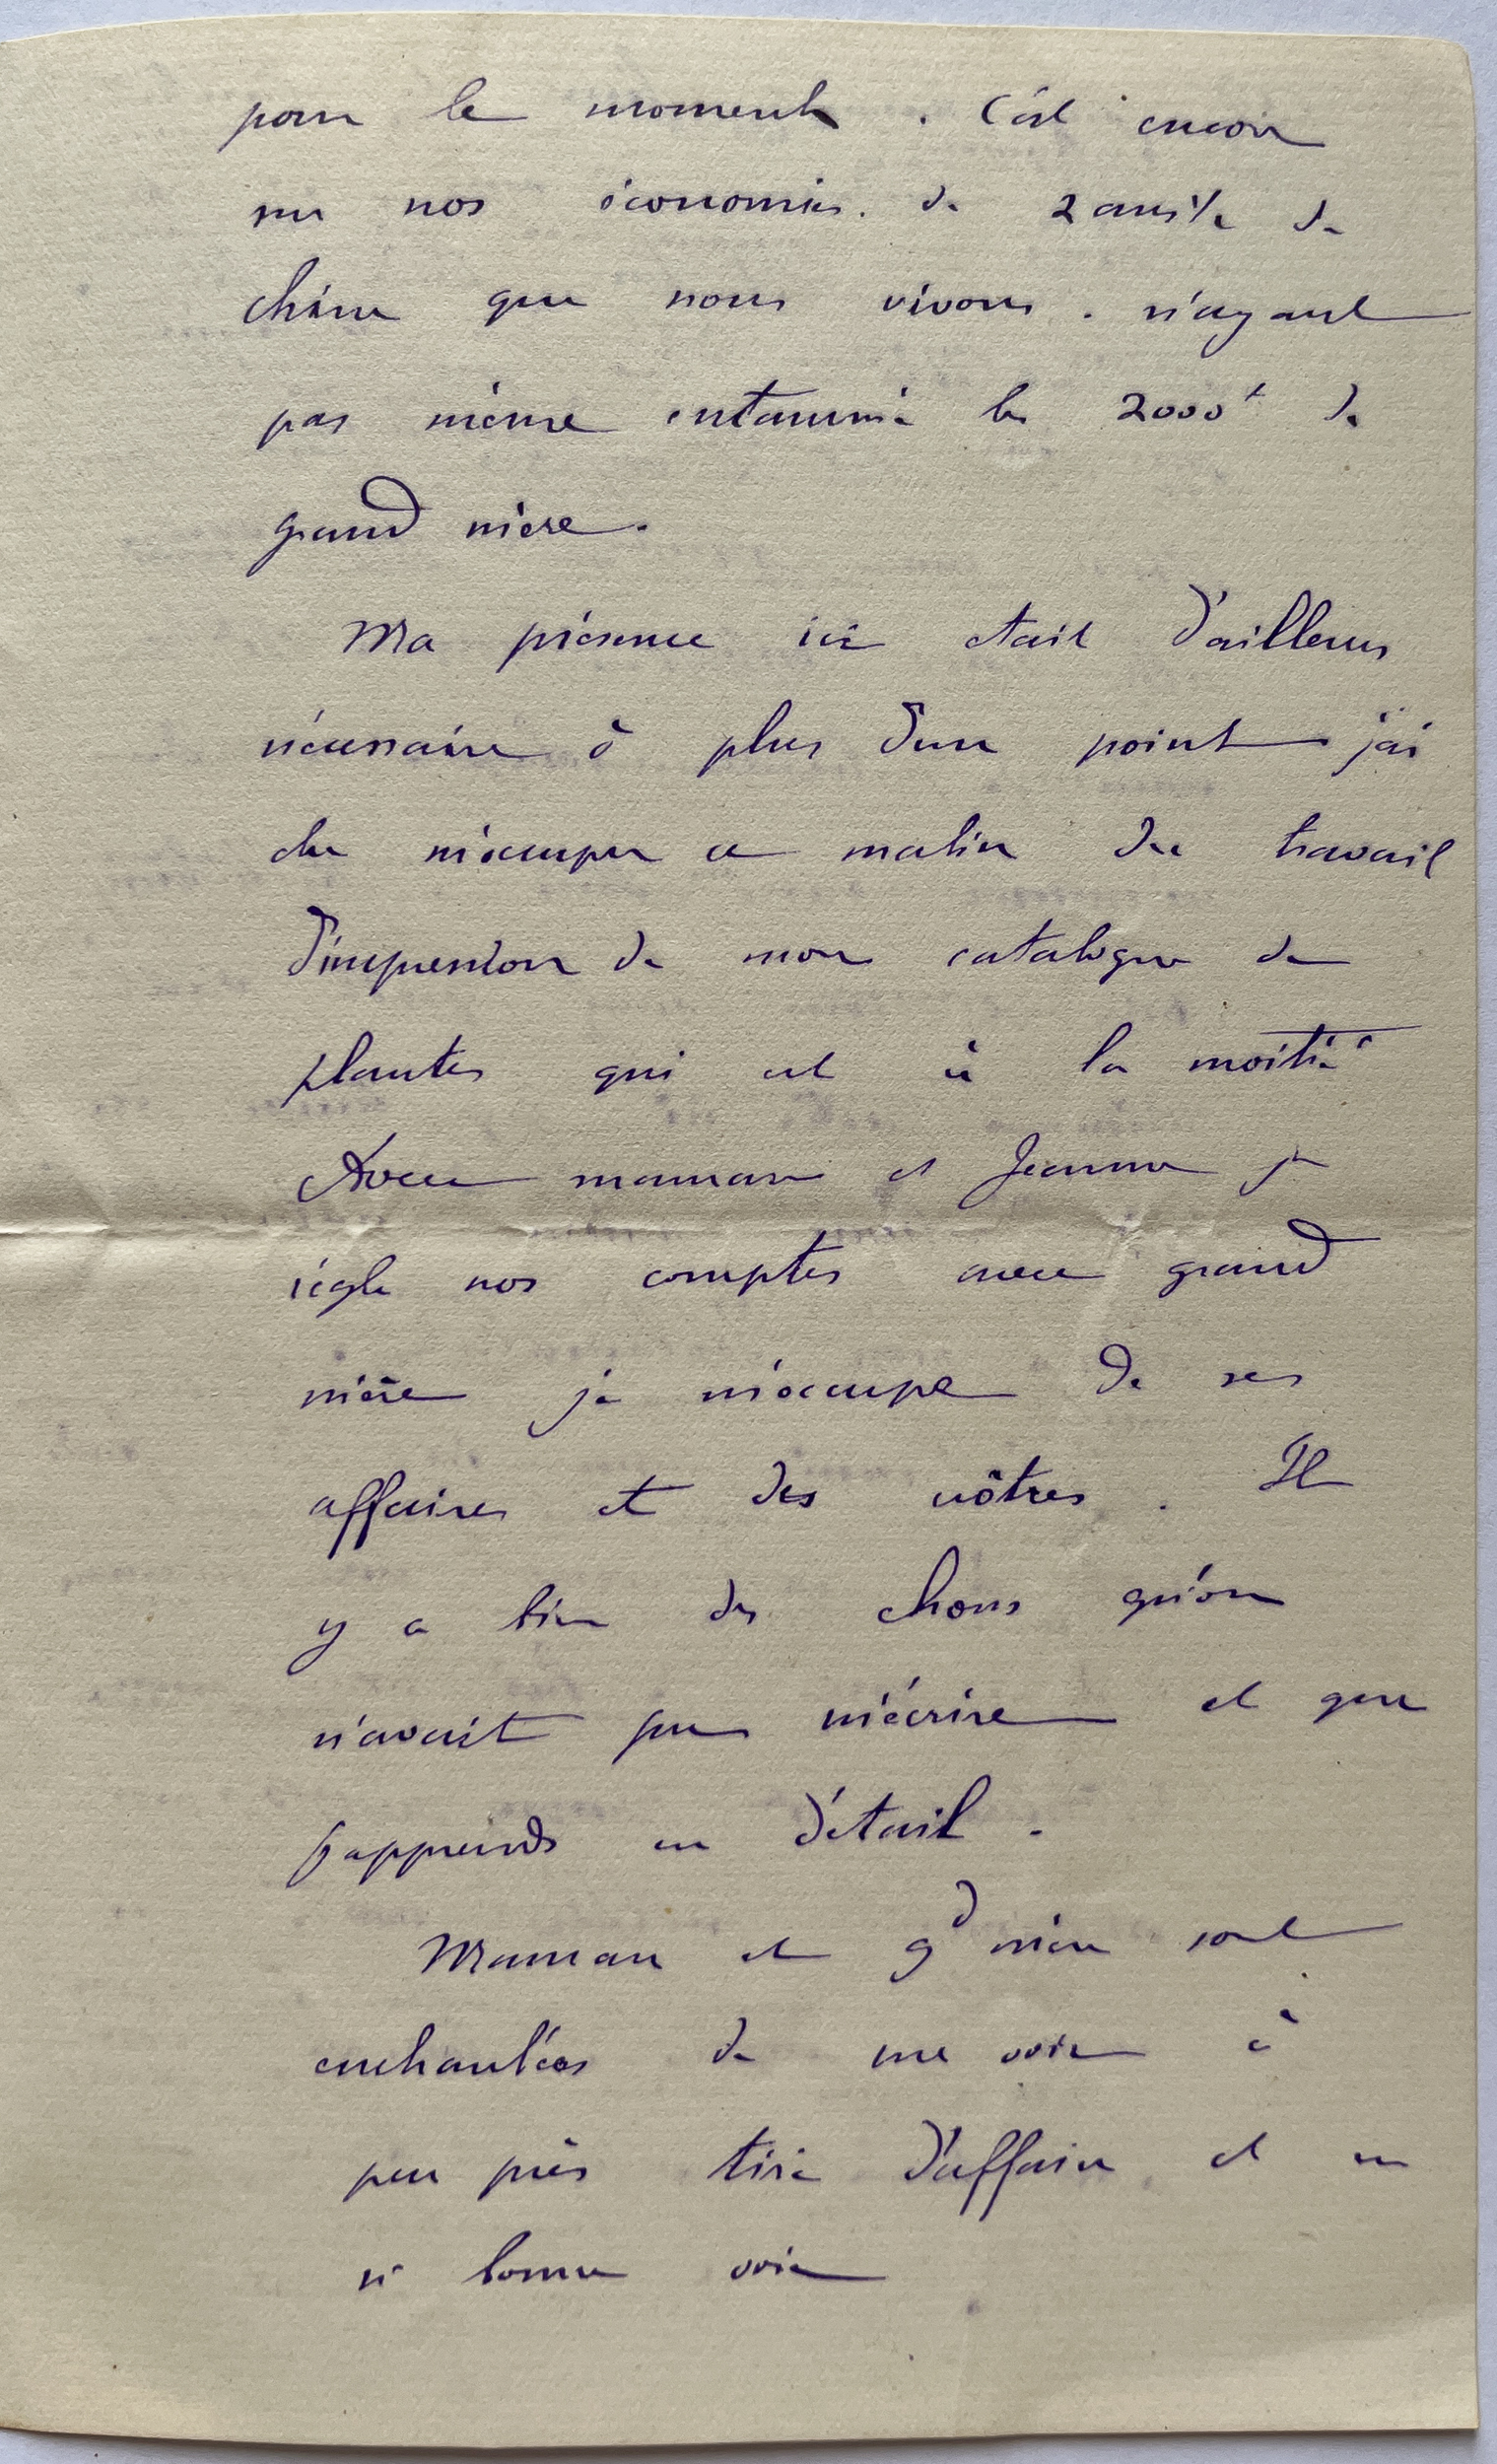 pour le moment. C'est encore
sur nos économies. de 2 ans ½ de
chine que nous vivons. n'ayant
pas même entammé les 2000f de
grand mère.
Ma présence ici était d'ailleurs
nécessaire à plus d'un point j'ai
du m'occuper ce matin du travail
d'impression de mon catalogue de
plantes qui est à la moitié
Avec maman et Jeanne je
règle nos comptes avec grand
mère je m'occupe de ses
affaires et des nôtres. Il
y a bien des choses qu'on
n'avait pu m'écrire et que
j'apprends en détail.
Maman et gd mère sont
enchantées de me voir à
peu près tiré d'affaire et en
si bonne voie